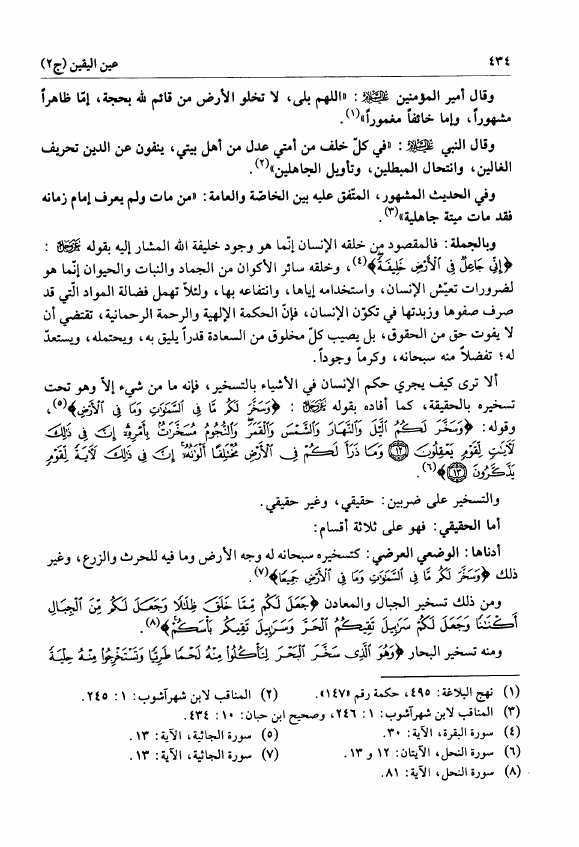 ٤٣٤ عين اليقين (ج٢)
وقال أمير المؤمنين عليه السلام: «اللهم بلى، لا تخلو الأرض من قائم لله بحجة، إمّا ظاهراً
مشهوراً، وإما خائفاً مغموراً»(١).
وقال النبي عليه السلام: «في كلّ خلف من أمتي عدل من أهل بيتي، ينفون عن الدين تحريف
الغالين، وانتحال المبطلين، وتأويل الجاهلين»(٢).
وفي الحديث المشهور، المتّفق عليه بين الخاصّة والعامة: «من مات ولم يعرف إمام زمانه
فقد مات ميتة جاهلية»(٣).
وبالجملة: فالمقصود من خلقه الإنسان إنّما هو وجود خليفة الله المشار إليه بقوله :
﴿إِنِّي جَاعِلٌ فِي ٱلْأَرْضِ خَلِيفَةً﴾(٤)، وخلقه سائر الأكوان من الجماد والنبات والحيوان إنّما هو
لضرورات تعيّش الإنسان، واستخدامه إياها، وانتفاعه بها، ولئلاّ تهمل فضالة المواد التي قد
صرف صفوها وزبدتها في تكوّن الإنسان، فإنّ الحكمة الإلهية والرحمة الرحمانية، تقتضي أن
لا يفوت حق من الحقوق، بل يصيب كلّ مخلوق من السعادة قدراً يليق به، ويحتمله، ويستعدّ
له؛ تفضلاً منه سبحانه، وكرماً وجوداً.
ألا ترى كيف يجري حكم الإنسان في الأشياء بالتسخير، فإنه ما من شيء إلاّ وهو تحت
تسخيره بالحقيقة، كما أفاده بقوله : ﴿وَسَخَّرَ لَكُم مَّا فِي ٱلسَّمَٰوَٰتِ وَمَا فِي ٱلْأَرْضِ﴾(٥)،
وقوله: ﴿وَسَخَّرَ لَكُمُ ٱلَّيْلَ وَٱلنَّهَارَ وَٱلشَّمْسَ وَٱلْقَمَرَ وَٱلنُّجُومُ مُسَخَّرَٰتٌ بِأَمْرِهِۦٓ إِنَّ فِي ذَٰلِكَ
لَءَايَٰتٍ لِّقَوْمٍ يَعْقِلُونَ ١٢ وَمَا ذَرَأَ لَكُمْ فِي ٱلْأَرْضِ مُخْتَلِفًا أَلْوَٰنُهُۥٓ إِنَّ فِي ذَٰلِكَ لَءَايَةً لِّقَوْمٍ
يَذَّكَّرُونَ ١٣﴾(٦).
والتسخير على ضربين: حقيقي، وغير حقيقي.
أما الحقيقي: فهو على ثلاثة أقسام:
أدناها: الوضعي العرضي: كتسخيره سبحانه له وجه الأرض وما فيه للحرث والزرع، وغير
ذلك ﴿وَسَخَّرَ لَكُم مَّا فِي ٱلسَّمَٰوَٰتِ وَمَا فِي ٱلْأَرْضِ جَمِيعًا﴾(٧).
ومن ذلك تسخير الجبال والمعادن ﴿جَعَلَ لَكُم مِّمَّا خَلَقَ ظِلَٰلًا وَجَعَلَ لَكُم مِّنَ ٱلْجِبَالِ
أَكْنَٰنًا وَجَعَلَ لَكُمْ سَرَٰبِيلَ تَقِيكُمُ ٱلْحَرَّ وَسَرَٰبِيلَ تَقِيكُم بَأْسَكُمْ﴾(٨).
ومنه تسخير البحار ﴿وَهُوَ ٱلَّذِي سَخَّرَ ٱلْبَحْرَ لِتَأْكُلُوا۟ مِنْهُ لَحْمًا طَرِيًّا وَتَسْتَخْرِجُوا۟ مِنْهُ حِلْيَةً
(١) نهج البلاغة: ٤٩٥، حكمة رقم «١٤٧». (٢) المناقب لابن شهرآشوب: ١: ٢٤٥.
(٣) المناقب لابن شهرآشوب: ١: ٢٤٦، وصحيح ابن حبان: ١٠: ٤٣٤.
(٤) سورة البقرة، الآية: ٣٠. (٥) سورة الجاثية، الآية: ١٣.
(٦) سورة النحل، الآيتان: ١٢ و ١٣. (٧) سورة الجاثية، الآية: ١٣.
(٨) سورة النحل، الآية: ٨١.